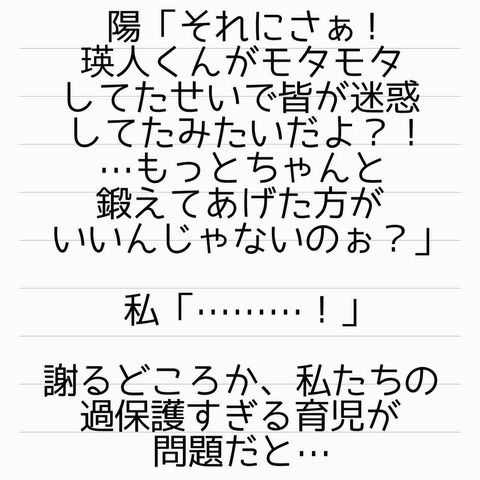 陽「それにさぁ！
瑛人くんがモタモタ
してたせいで皆が迷惑
してたみたいだよ？！
…もっとちゃんと
鍛えてあげた方が
いいんじゃないのぉ？」
私「………！」
謝るどころか、私たちの
過保護すぎる育児が
問題だと…